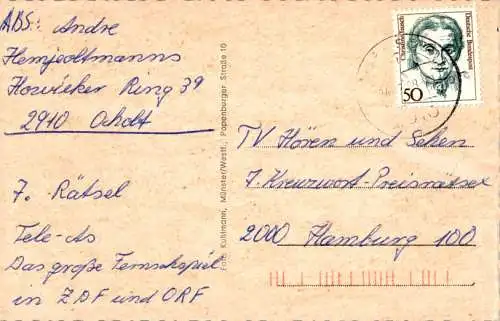 ABS: Andre
Hempoltmanns
Howieker Ring 39
2910 Ocholt
7. Rätsel
Tele-As
Das große Fernsehspiel
in ZDF und ORF
Foto Kuhlmann, Münster/Westf., Papenburger Straße 10
Christine Teusch
Deutsche Bundespost
50
TV Hören und Sehen
7. Kreuzwort-Preisrätsel
2000 Hamburg 100